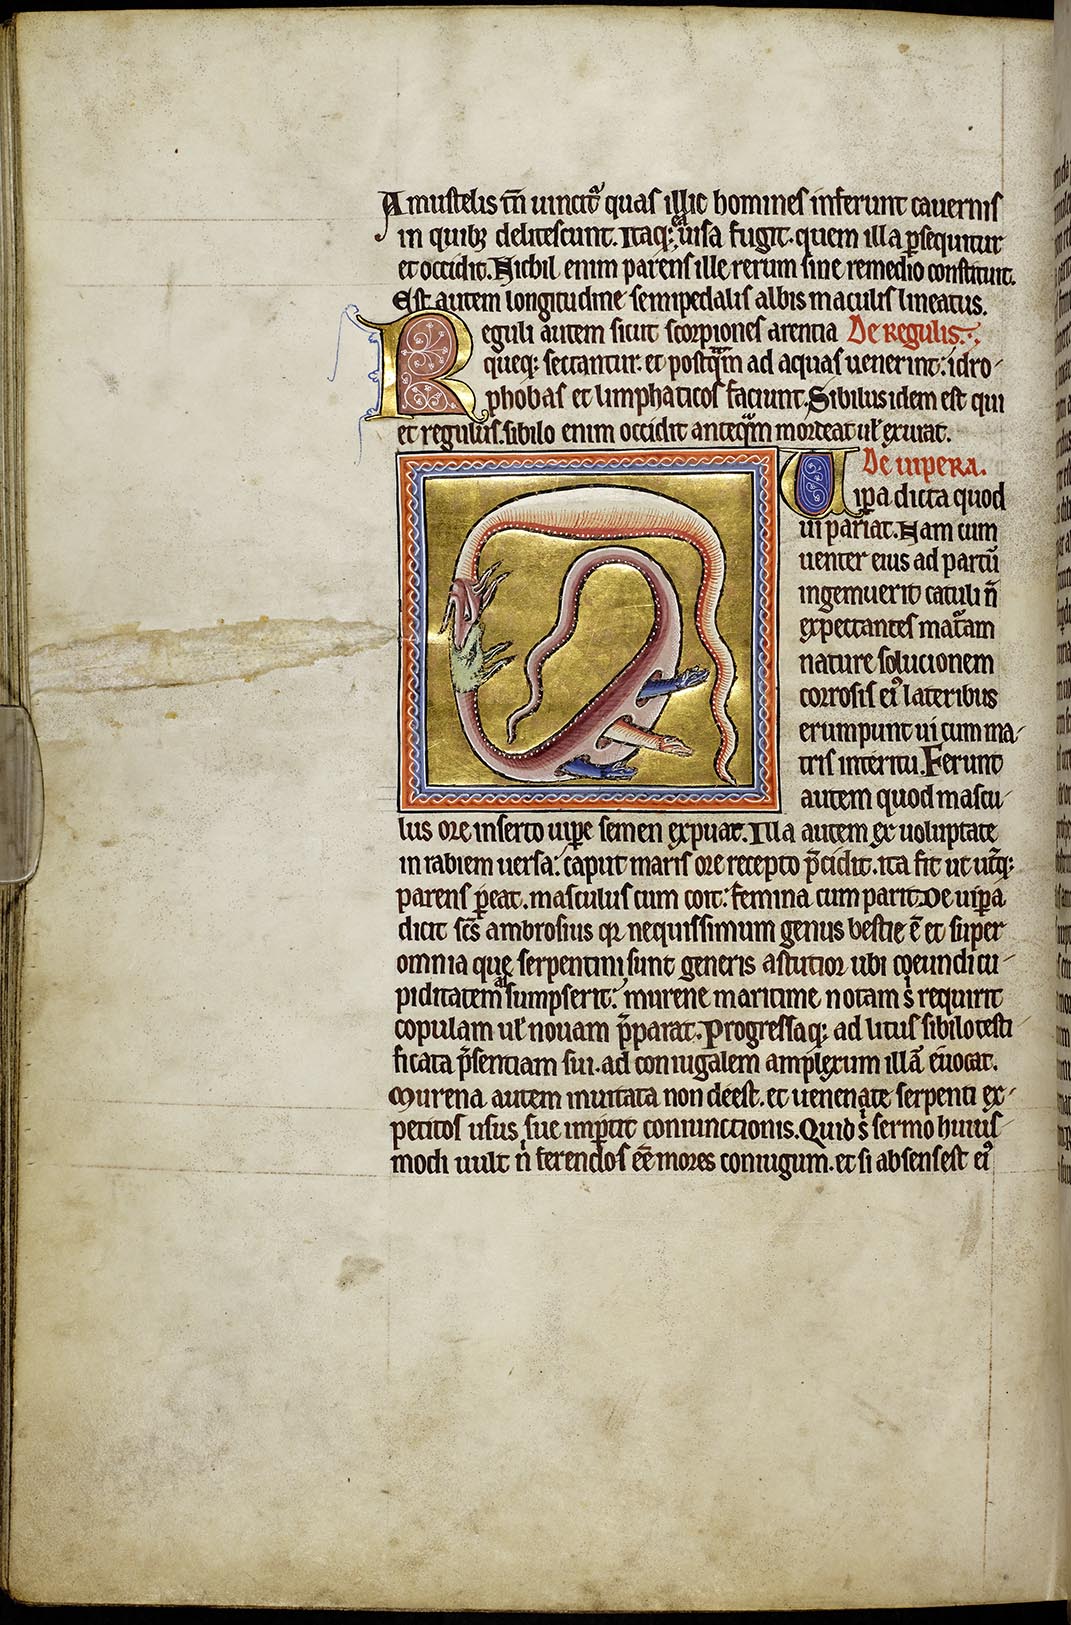 A mustelis tn̄ uincit᷑ quas illic homines inferunt cauernis
in quibꝫ delitescunt. Itaqꝫ ea uisa fugit. quem illa ꝑsequitur
et occidit. Nichil enim parens ille rerum sine remedio constituit.
Est autem longitudine semipedalis albis maculis lineatus.
Reguli autem sicut scorpiones arentia De Regulis.
queqꝫ sectantur. et postqͣm ad aquas uenerint: idro-
phobas et limphaticos faciunt. Sibilus idem est qui
et regulus. sibilo enim occidit anteqͣm mordeat ul̓ exurat.
De uipera.
Viꝑa dicta quod
ui pariat. Nam cum
uenter eius ad partū
ingemuerit catuli n̄
expectantes maturam
nature solucionem
corrosis eiꝰ lateribus
erumpunt ui cum ma-
tris interitu. Ferunt
autem quod mascu-
lus ore inserto uiꝑe semen expuat. Illa autem ex uoluptate
in rabiem uersa: caput maris ore recepto p̄cidit. ita fit ut ut͛qꝫ
parens ꝑeat. masculus cum coit: femina cum parit. De uiꝑa
dicit scs̄ ambrosius qꝛ nequissimum genus bestie ē et super
omnia que serpentini sunt generis astutior ubi coeundi cu-
piditatem assumpserit: murene maritime notam sͥ requirit
copulam ul̓ nouam p̄parat. Progressaqꝫ ad litus sibilo testi
ficata p̄sentiam sui. ad coniugalem amplexum illā euocat.
Murena autem inuitata non deest. et uenenate serpenti ex-
petitos usus sue imꝑtit coniunctionis. Quid sͥ sermo huius-
modi uult n̄ ferendos eē mores coniugum. et si absens est eiꝰ